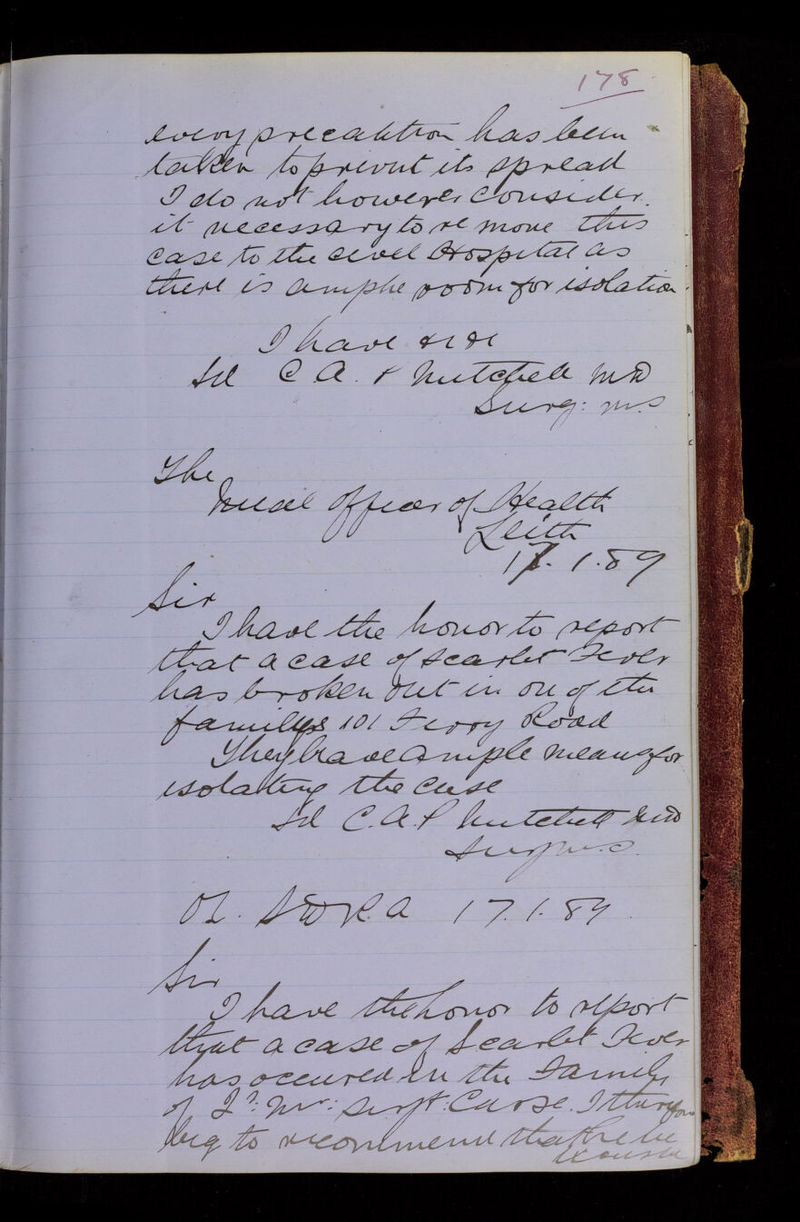 178
every precaution has been
taken to prevent its spread
I do not however consider
it necessary to remove this
case to the civil Hospital as
there is ample room for isolation.
I have &c &c
Sd C A. P Mitchell MD
Surg: M.S
The
Medl Officer of Health
Leith
17. 1. 89
Sir
I have the honor to report
that a case of Scarlet Fever
has broken out in one of the
familys 101 Ferry Road
They have ample means for
isolating the case
Sd C.A.P Mitchell MD
Surg M.S.
OC. SDRA 17.1.89
Sir
I have the honor to report
that a case of Scarlet Fever
has occured in the Family
of Qr: Mr: Sergt: Carse. I therefore
beg to recommend that he be